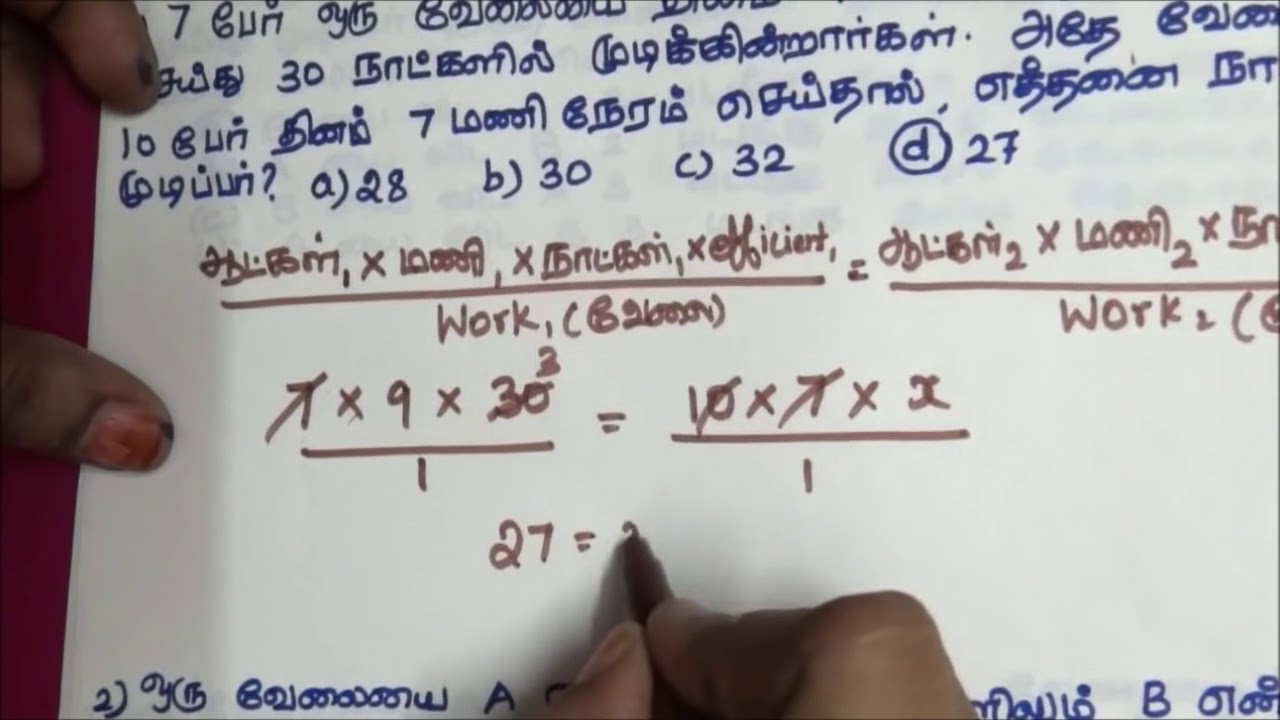 7 பேர் ஒரு வேலையை தினம்
சய்து 30 நாட்களில் முடிக்கின்றார்கள். அதே வேலை
10 பேர் தினம் 7 மணி நேரம் செய்தால், எத்தனை நா
முடிப்பர்? a) 28 b) 30 c) 32 d) 27
ஆட்கள்₁ × மணி₁ × நாட்கள்₁ × efficient₁ = ஆட்கள்₂ × மணி₂ × நா
Work₁ (வேலை) Work₂ (
7 × 9 × 30 3 = 10 × 7 × x
1 1
27 =
2) ஒரு வேலையை A ளிலும் B என்